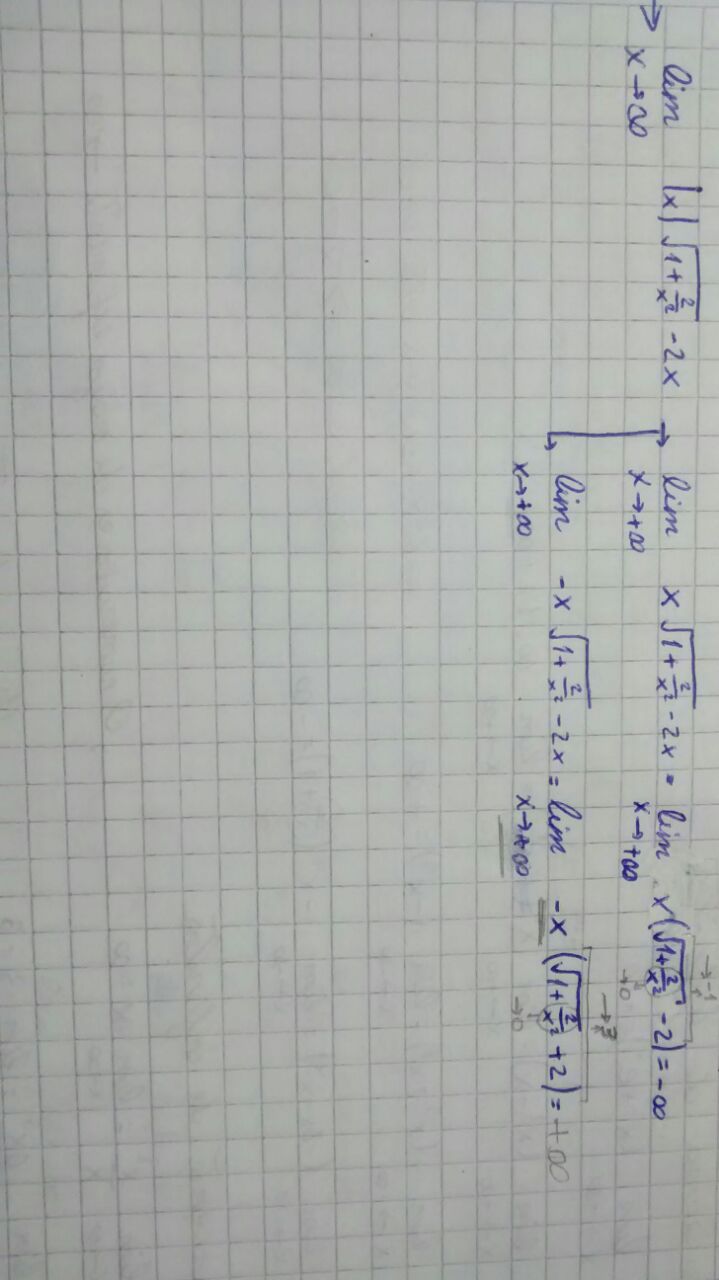 → lim x→∞ |x| √(1 + 2/x²) - 2x → lim x→+∞ x √(1 + 2/x²) - 2x = lim x→+∞ x (√(1 + 2/x²) - 2) = -∞
→ -1
→ 0
→ lim x→+∞ -x √(1 + 2/x²) - 2x = lim x→+∞ -x (√(1 + 2/x²) + 2) = +∞
→ 3
→ 0